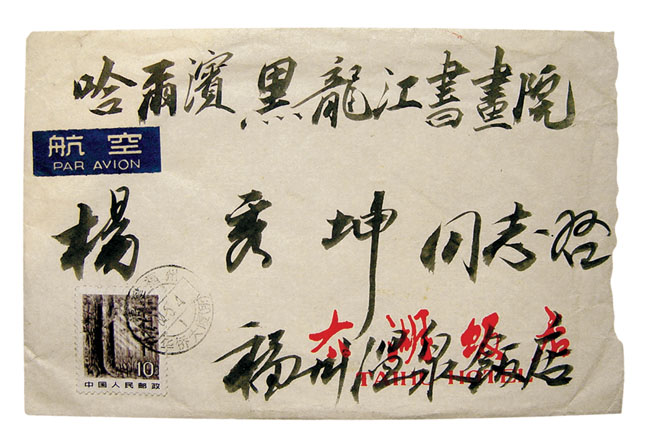 哈爾濱黑龍江書畫院
航空
PAR AVION
楊秀坤同志啟
福州
10
中国人民邮政
太湖飯店
TAIHU HOTEL
福州温泉飯店